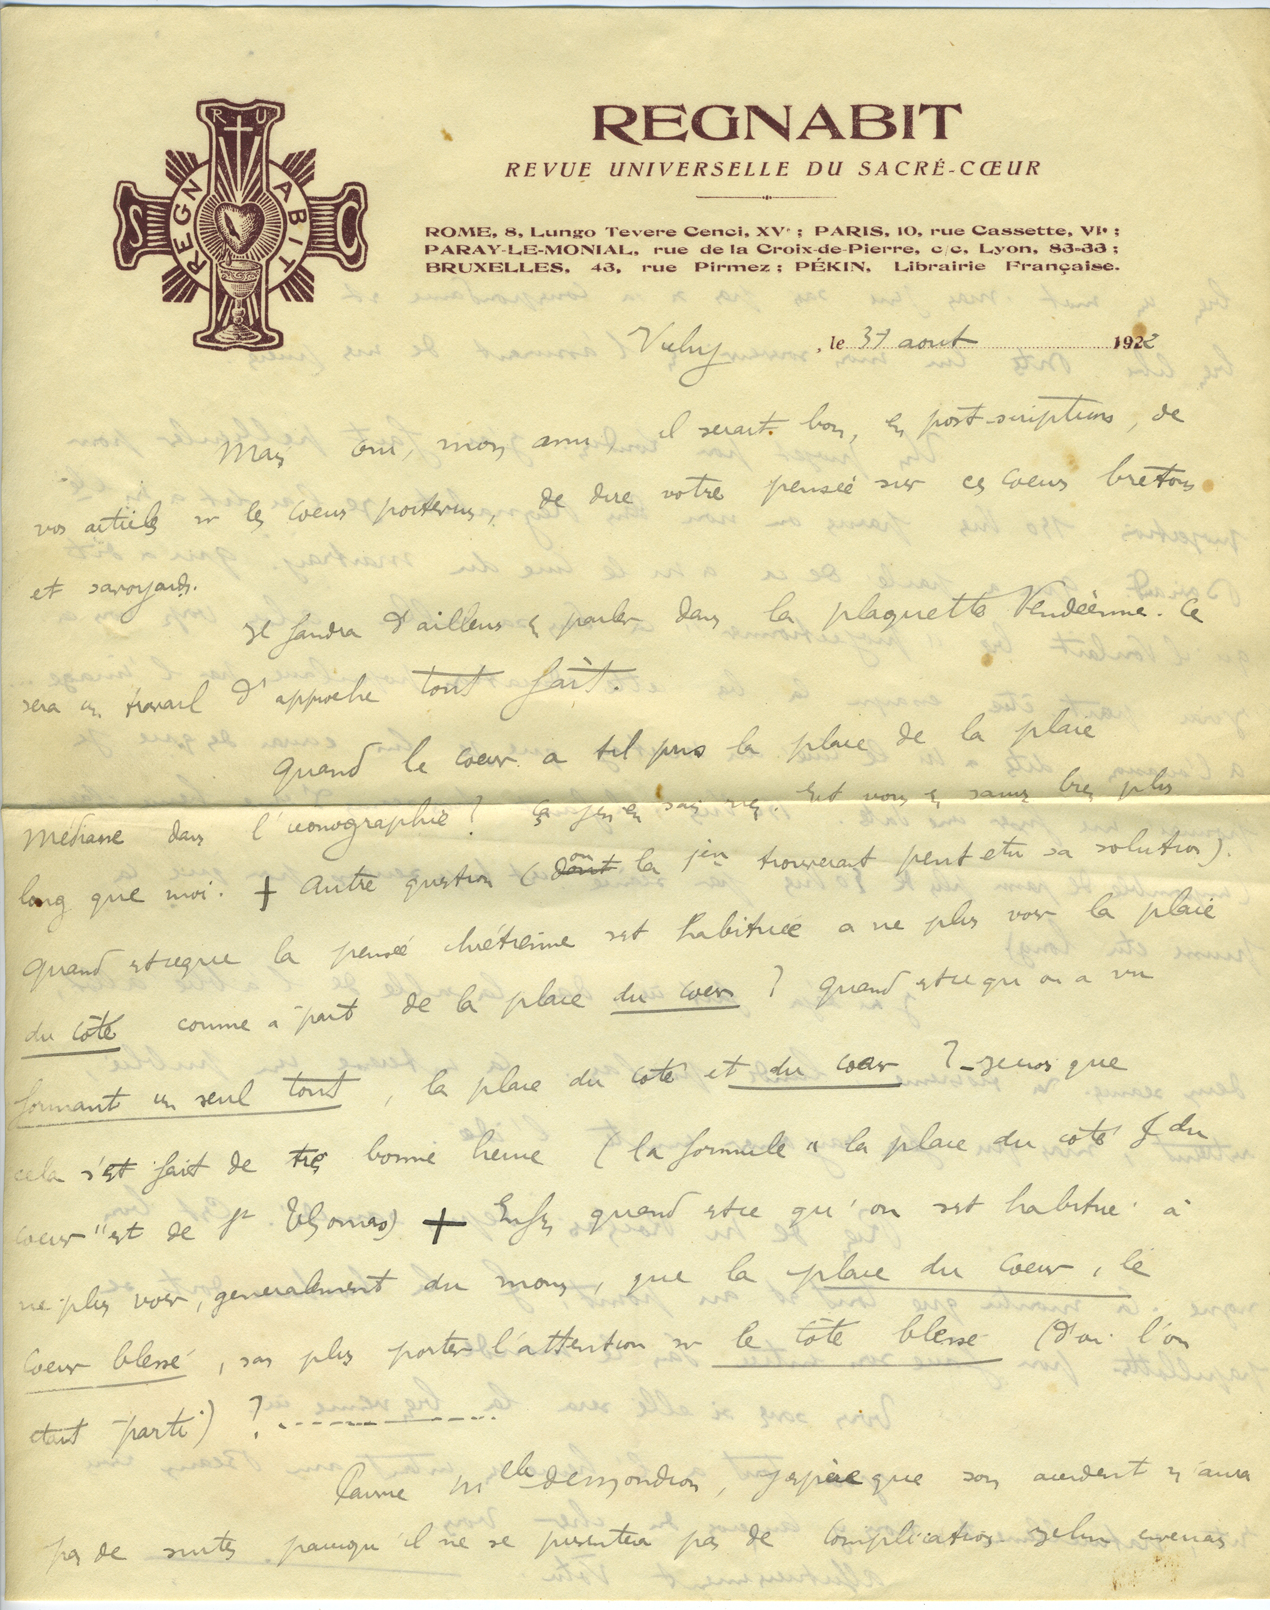 R U
S REGNABIT C
REGNABIT
REVUE UNIVERSELLE DU SACRÉ-CŒUR
ROME, 8, Lungo Tevere Cenci, XVe ; PARIS, 10, rue Cassette, VIe ;
PARAY-LE-MONIAL, rue de la Croix-de-Pierre, c/c. Lyon, 83-33 ;
BRUXELLES, 43, rue Pirmez ; PÉKIN, Librairie Française.
Vichy, le 31 aout 1922
Mais oui, mon ami il serait bon, en post-scriptum, de
vos articles sr les coeurs poitevins, de dire votre pensée sur ces coeurs bretons
et savoyards.
Il faudra d'ailleurs en parler dans la plaquette Vendéenne. Ce
sera un travail d'approche tout fait.
Quand le coeur a til pris la place de la plaie
médiane dans l'iconographie ? Ça j'en sais rien. Et vous en savez bien plus
long que moi. + Autre question (ou la jen trouverait peut etre sa solution).
Quand estceque la pensée chrétienne sest habituée a ne plus voir la plaie
du côté comme à part de la plaie du coeur ? Quand estce qu on a vu
formant un seul tout, la plaie du coté et du coeur ? - Je crois que
cela s'est fait de très bonne heure (la formule "la plaie du coté & du
coeur" est de St Thomas) + Enfin quand estce qu'on sest habitué à
ne plus voir, generalement du moins, que la plaie du coeur, le
coeur blessé, sans plus porter l'attention sr le côté blessé (d'où l'on
etait parti) ?
Pauvre Melle, j'espère que son accident n'aura
pas de suites puisqu'il ne se presentera pas de complication